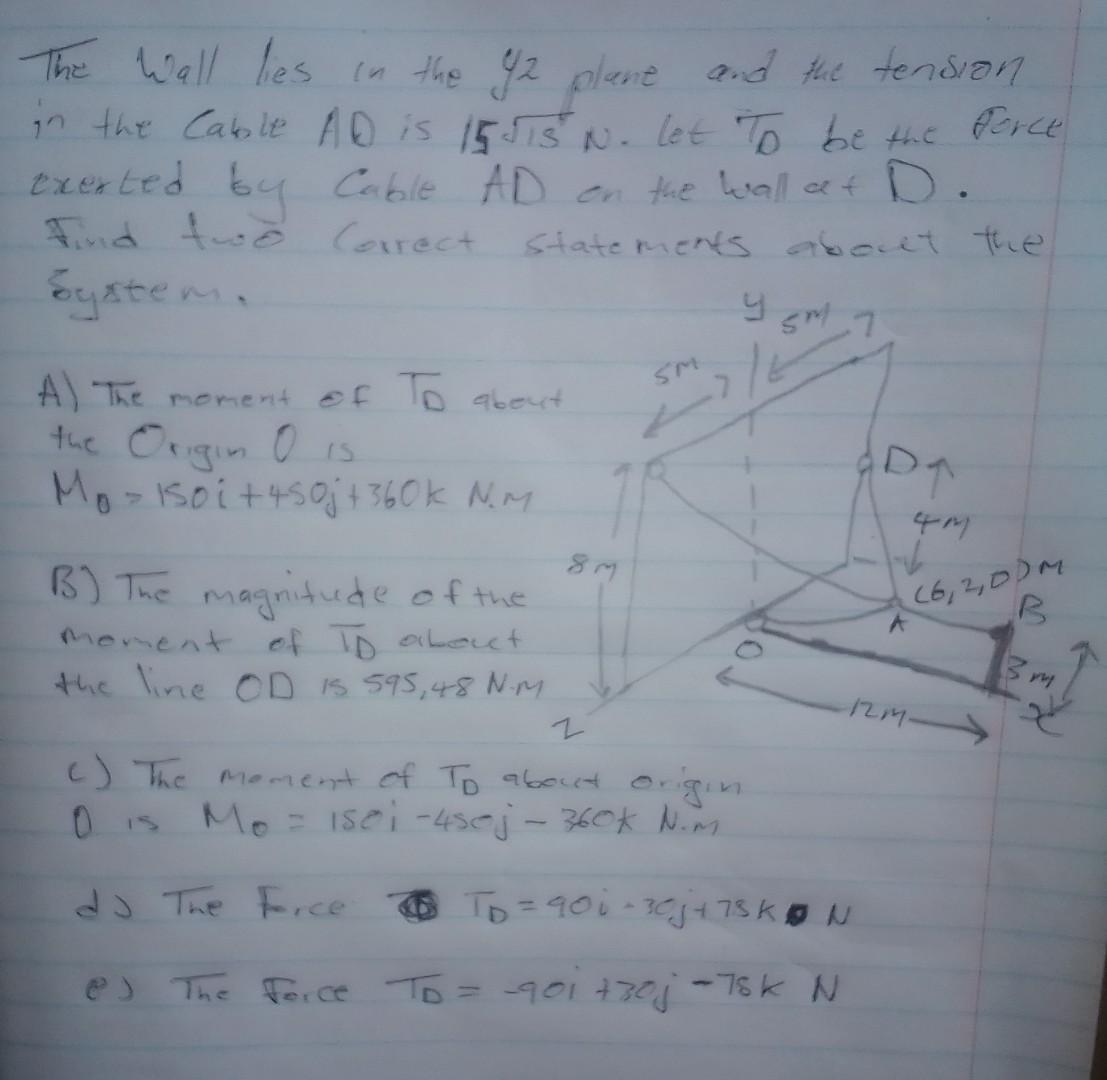 The Wall lies in the yz plane and the tension
in the Cable AD is 15√15 N. let TD be the Force
exerted by Cable AD on the Wall at D.
Find two Correct statements about the
System.
A) The moment of TD about
the Origin O is
Mo = 150i + 450j + 360k N.M
B) The magnitude of the
moment of TD about
the line OD is 595,48 N.M
c) The moment of TD about origin
O is Mo = 150i - 450j - 360k N.m
d) The Force TD = 90i - 30j + 75k N
e) The Force TD = -90i + 30j - 75k N
y
5M
5M
D
4M
8M
(6,2,0)M
B
A
O
3m
12M
x
Z